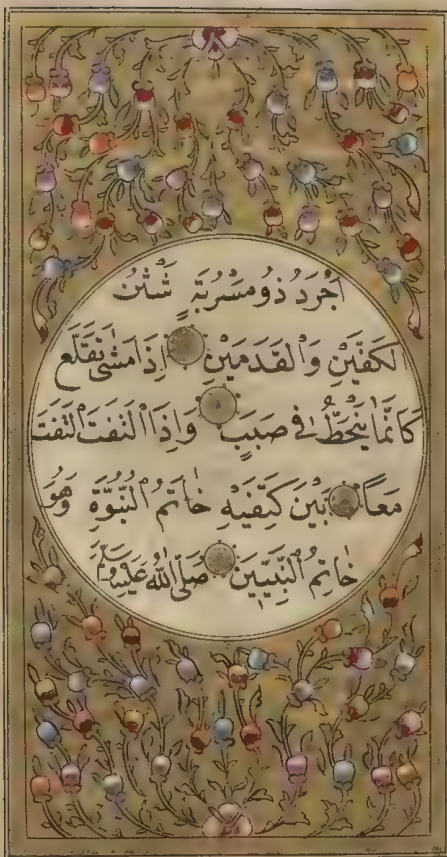 اَجْرَدُ ذُو مَسْرُبَةٍ شَثْنُ
الْكَفَّيْنِ وَالْقَدَمَيْنِ اِذَا مَشٰى تَقَلَّع
كَاَنَّمَا يَنْحَطُّ فِى صَبَبٍ وَاِذَا الْتَفَتَ الْتَفَتَ
مَعًا بَيْنَ كَتِفَيْهِ خَاتَمُ النُّبُوَّةِ وَهُوَ
خَاتِمُ النَّبِيّٖنَ صَلَّى اللّٰهُ عَلَيْهِ وَسَلَّمْ